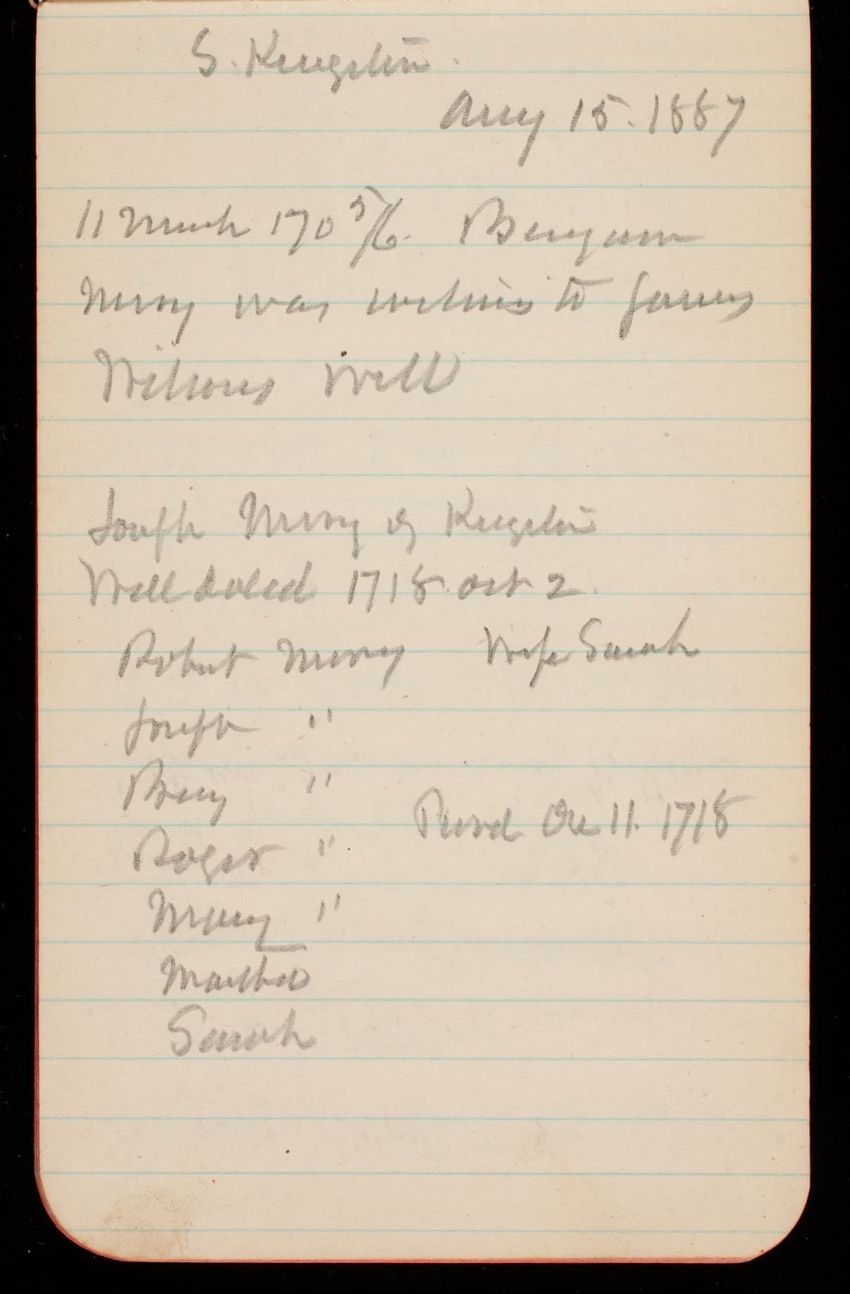 S. Kingston.
Aug 15. 1887
11 March 170 5/6. Benjamin
Mory was witness to James
Wilsons Will
Joseph Mory of Kingston
Will dated 1718 Oct 2.
Robert Mory Wife Sarah
Joseph "
Benj "
Proved Dec 11. 1718
Roger "
Mary "
Martha
Sarah